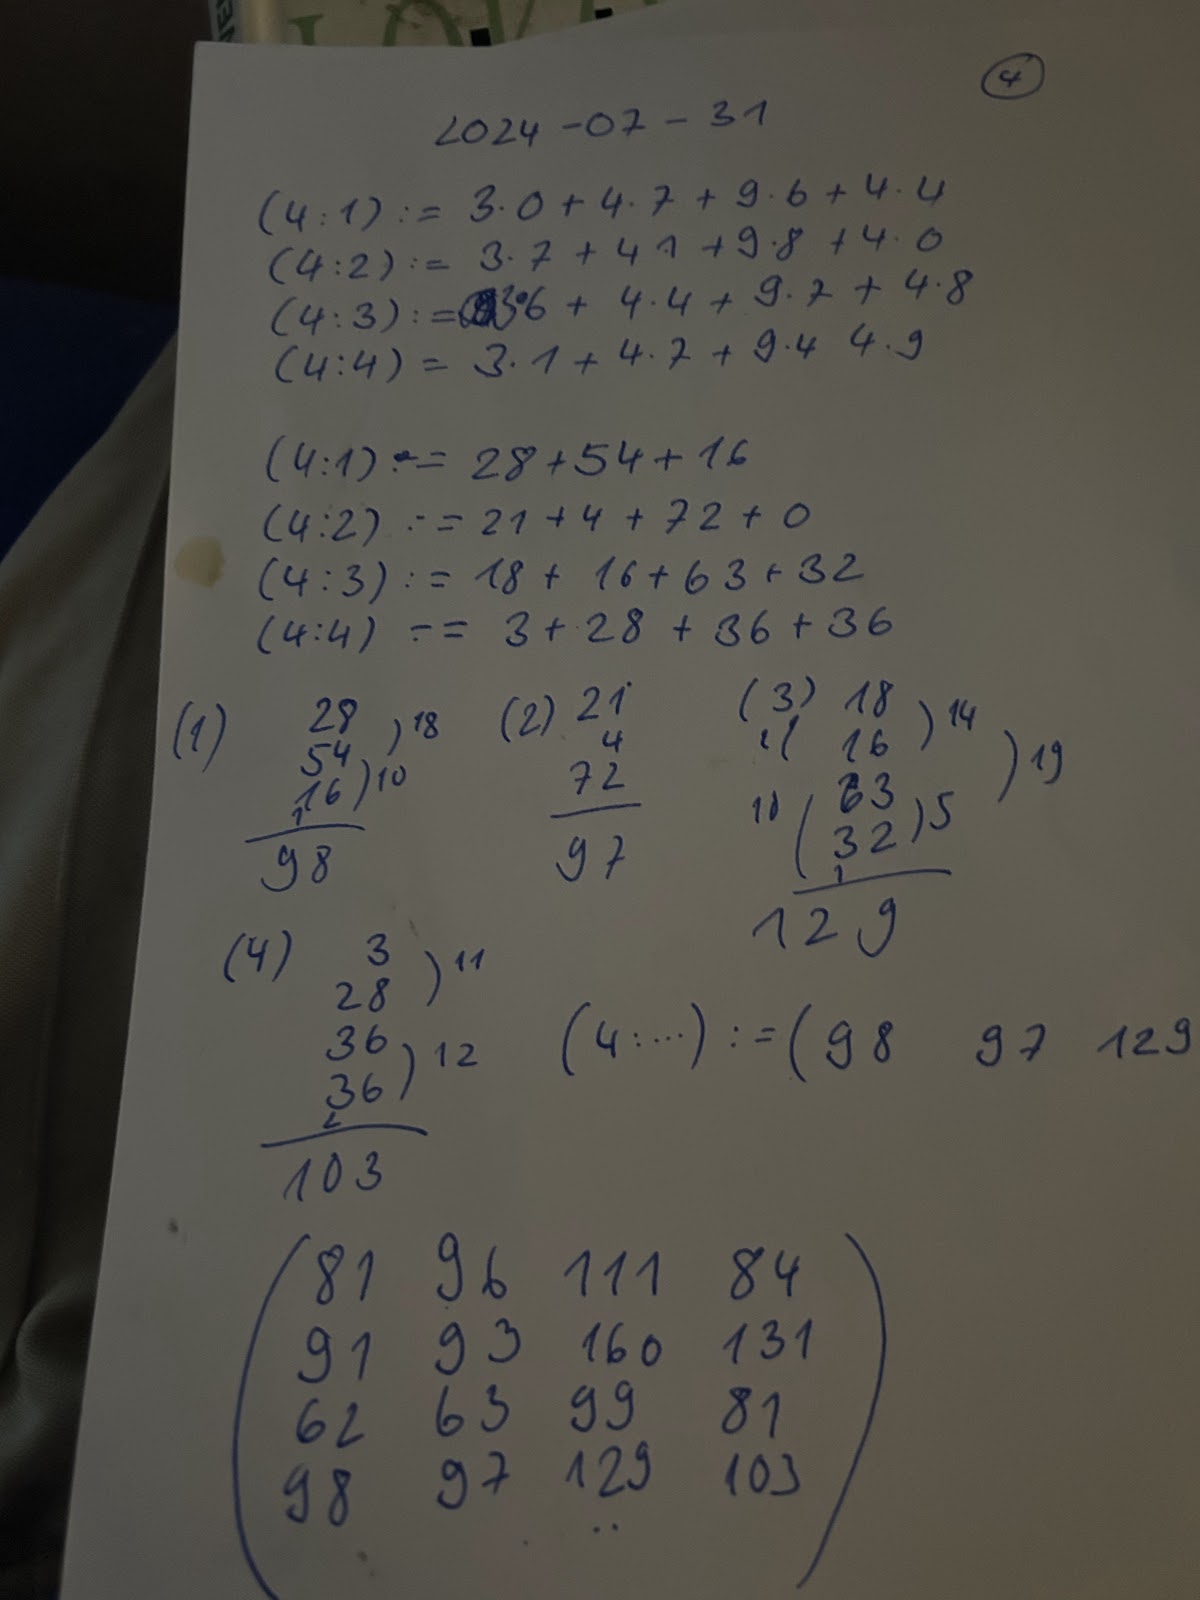 ④
2024-07-31
(4:1) := 3·0 + 4·7 + 9·6 + 4·4
(4:2) := 3·7 + 4·1 + 9·8 + 4·0
(4:3) := 3·6 + 4·4 + 9·7 + 4·8
(4:4) = 3·1 + 4·7 + 9·4 4·9
(4:1) := 28+54+16
(4:2) := 21+4+72+0
(4:3) := 18+ 16+63+32
(4:4) := 3+28+36+36
(1) 28 )18 (2) 21 (3) 18 )14
54 4 16 )19
16 )10 72 63
1 10 ( 32 )5
98 97 1
129
(4) 3 )11
28
36 )12 (4:...) := (98 97 129
36
2
103
81 96 111 84
91 93 160 131
62 63 99 81
98 97 129 103